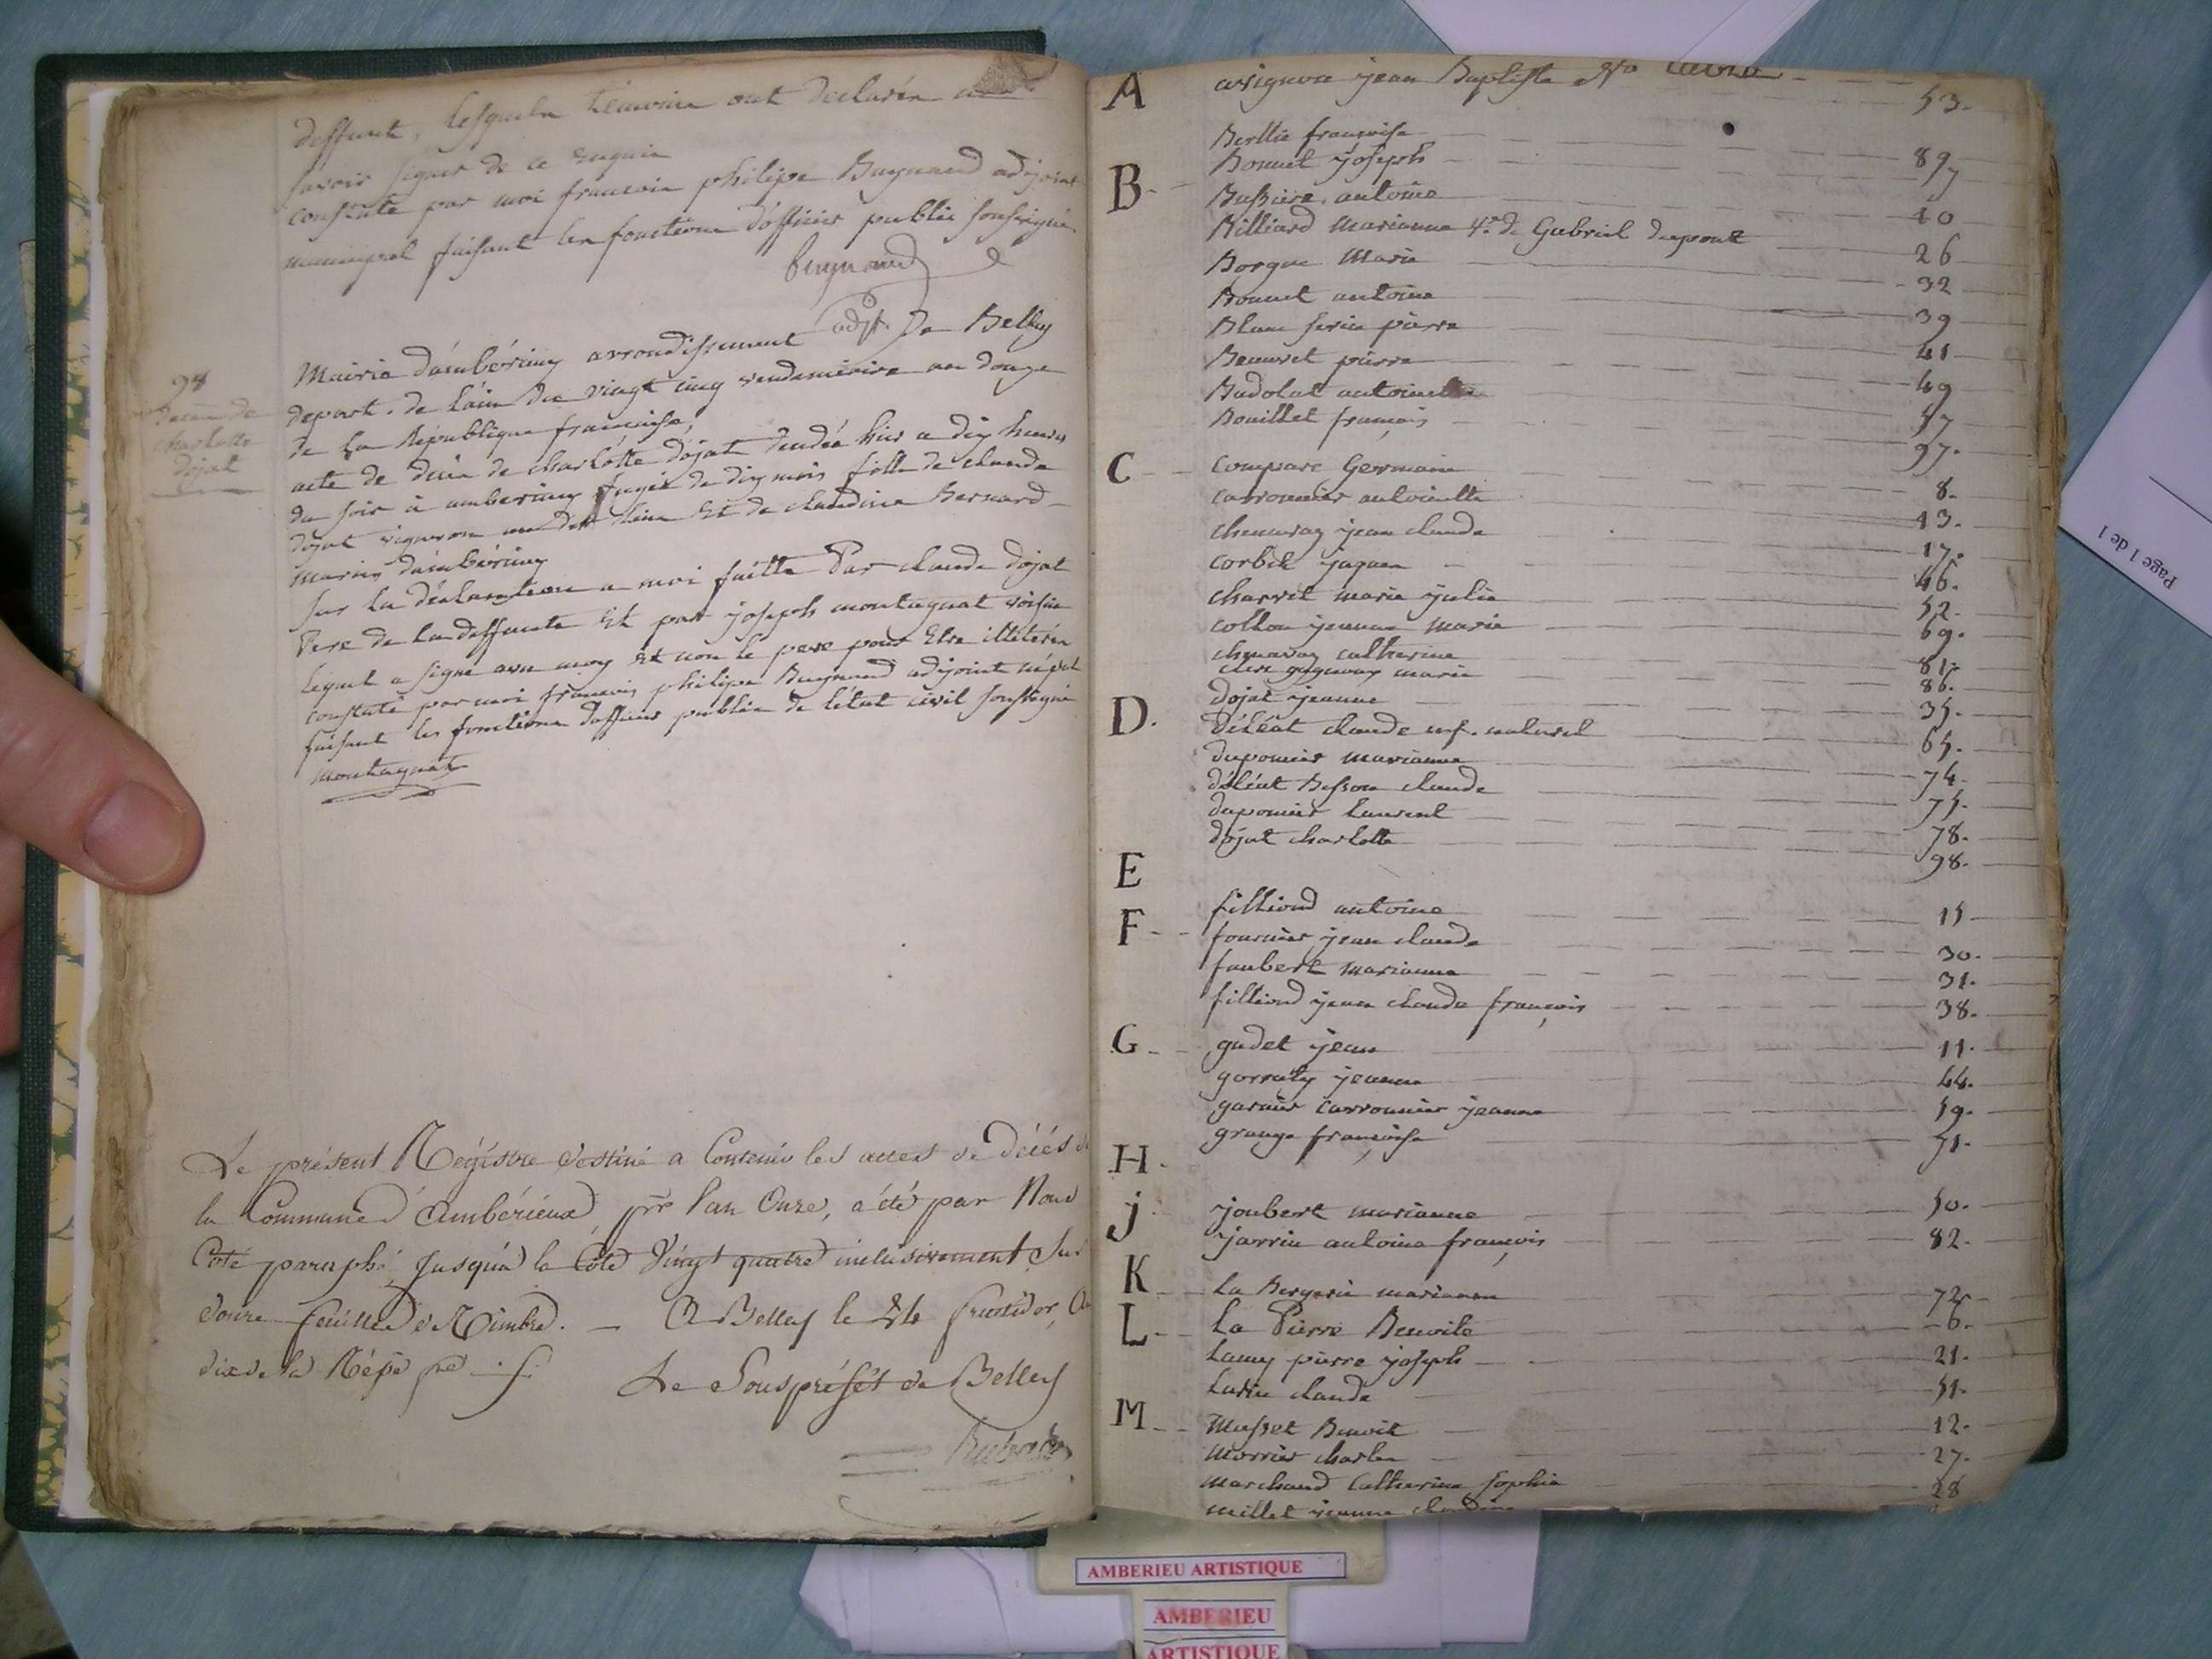 deffunt, lesquels témoins ont déclarés
savoir signer de ce enquis
constaté par moi françois philipe Buynand adjoint
municipal faisant les fonctions d'officier public soussigné.
buynand
adjt.
98
Décès de
charlotte
dojat
Mairie d'ambérieux arrondissement De Belley
depart. de l'ain du vingt cinq vendemiaire an douze
de la République francaise,
acte de décès de charlotte dojat décédée hier a dix heures
du soir à amberieux agée de dix mois fille de claude
dojat vigneron au dit lieu Et de claudine Bernard
mariés d'ambérieux
sur la déclaration a moi faitte Par claude dojat
Pere de la deffunte Et par joseph montagnat voisin
lequel a signé avec moy Et non le pere pour Etre illétéré
constaté par moi francois philipe Buynand adjoint mépal
faisant les fonctions dofficier public de l'état civil soussigné
montagnat
Le présent Régistre destiné a Contenir les actes de Décés de
la Commune d'Ambérieux, pr l'an Onze, a été par Nous
Coté paraphé Jusqu'à la Cote Vingt quatre inclusivement Sur
douze feuilles de Timbre. — A Belley le 24 fructidor, An
dix de la Répe fse
Le Sous préfét de Belley
A
avignon jean Baptiste 53.
Berllie françoise
B
Bonnet joseph 89
Bussiere antoine 10
Billiard marianne Ve. de Gabriel dupont 26
Borgue Marie 32
Bonnet antoine 39
Blanc serin pierre 41
Beauvet pierre 49
Badolat antoinette 57
Bouillet françois 97.
C
compare Germain 8.
carronnier antoinette 13.
chenavaz jean claude 17.
corbet jaques 46.
charvet marie julie 52.
collon jeanne marie 69.
chenavaz catherine 81.
marie 86.
D.
dojat jeanne 35.
déléat claude enf. naturel 65.
duponier marianne 74.
déléat Besson claude 75.
duponier laurent 78.
dojat charlotte 98.
E
F
filliond antoine 15
fournier jean claude 30.
faubert marianne 31.
filliond jean claude françois 38.
G
gudet jean 11.
gorraty jeanne 44.
garnier carronnier jeanne 59.
grange françoise 51.
H.
j
joubert marianne 50.
jarrin antoine françois 82.
K
L
la Bergerie marianne 72.
la Pierre Benoite 6.
Lamy pierre joseph 21.
Larin claude 51.
M
Musset Benoit 12.
morrier charles 27.
marchand Catherine sophie 28
millet jeanne claudine
Page 1 de 1
AMBERIEU ARTISTIQUE
AMBERIEU
ARTISTIQUE